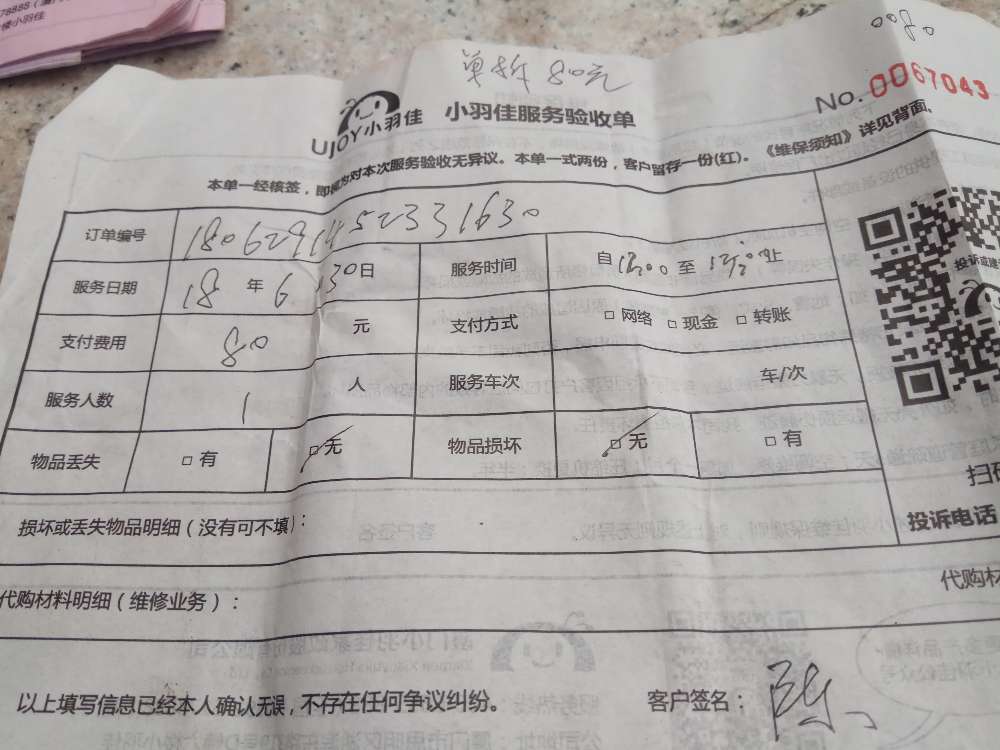 78888
楼小羽佳
单拆 80元
UJOY小羽佳 小羽佳服务验收单
No. 0067043
本单一经核签，即视为对本次服务验收无异议。本单一式两份，客户留存一份(红)。《维保须知》详见背面。
订单编号
服务日期 18 年 6 30日 服务时间 自 至 止
支付费用 80 元 支付方式 □ 网络 □ 现金 □ 转账
服务人数 1 人 服务车次 车/次
物品丢失 □ 有 □ 无 物品损坏 □ 无 □ 有
损坏或丢失物品明细（没有可不填）：
扫码
投诉电话
代购材料明细（维修业务）：
代购材
以上填写信息已经本人确认无误，不存在任何争议纠纷。 客户签名：